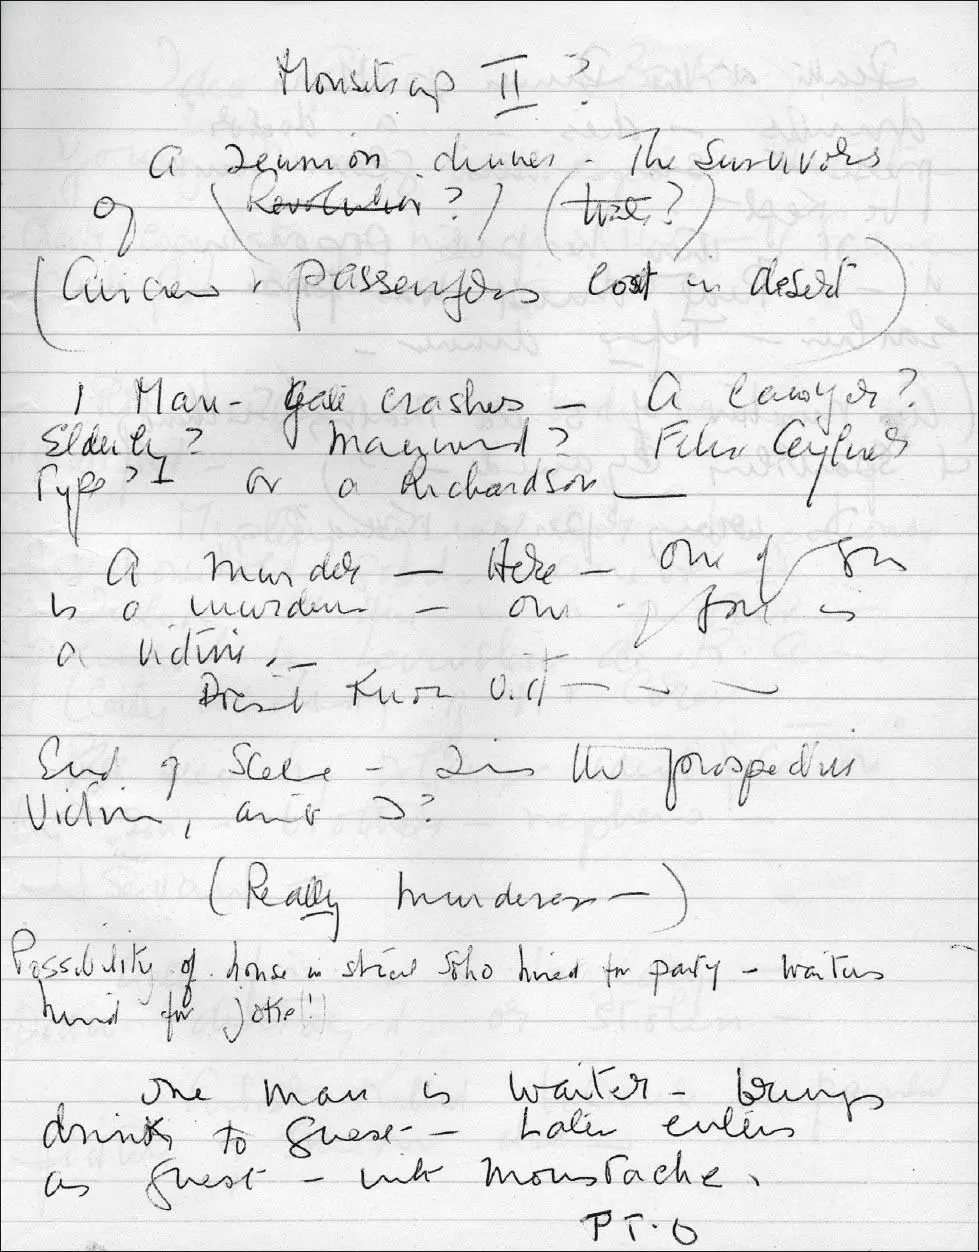 Mousetrap II ?
A reunion dinner - The Survivors
of (Revolution?) (trek?)
(Aircrew & passengers lost in desert)
1 Man - Gate crashes - A lawyer?
Elderly? Mannered? Felix Aylmer
Type? or a Richardson
A murder - Here - one of you
is a murderer - one of you is
a victim.
Doesn't know v. if
End of Scene - I am the prospective
Victim, aren't I?
(Really murderer -)
Possibility of house in street Soho hired for party - waiters
hired for joke!!
One man is waiter - brings
drinks to guest - Later enters
as guest - with moustache.
P T. O